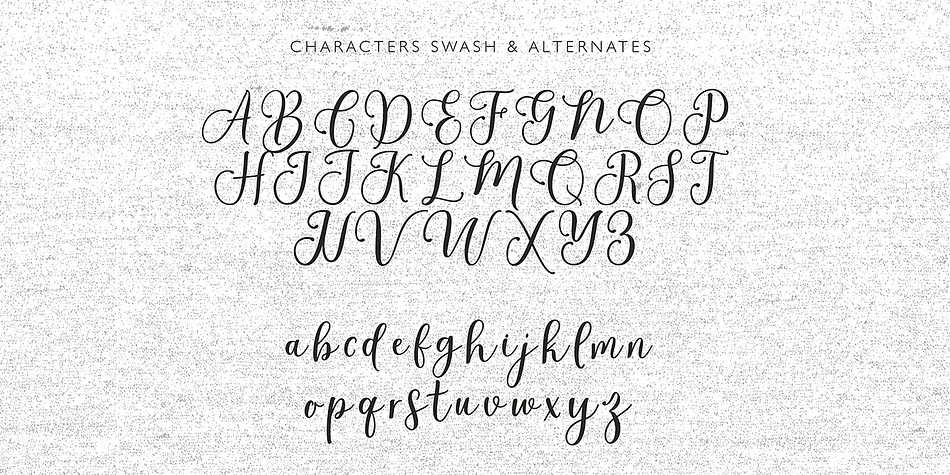 CHARACTERS SWASH & ALTERNATES
ABCDEFGNOP
HIJKLMQRST
UVWXYZ
abcdefghijklmn
opqrstuvwxyz